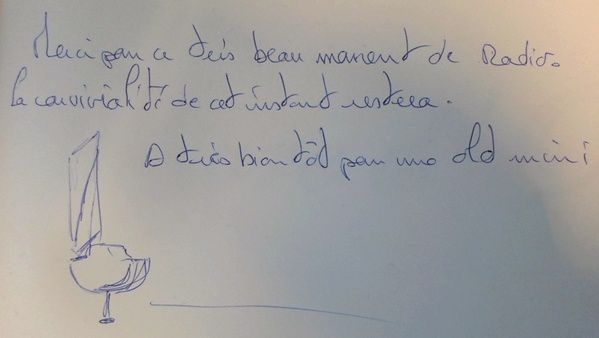 Merci pour ce très beau moment de Radio.
La convivialité de cet instant restera.
A très bientôt pour une old mini